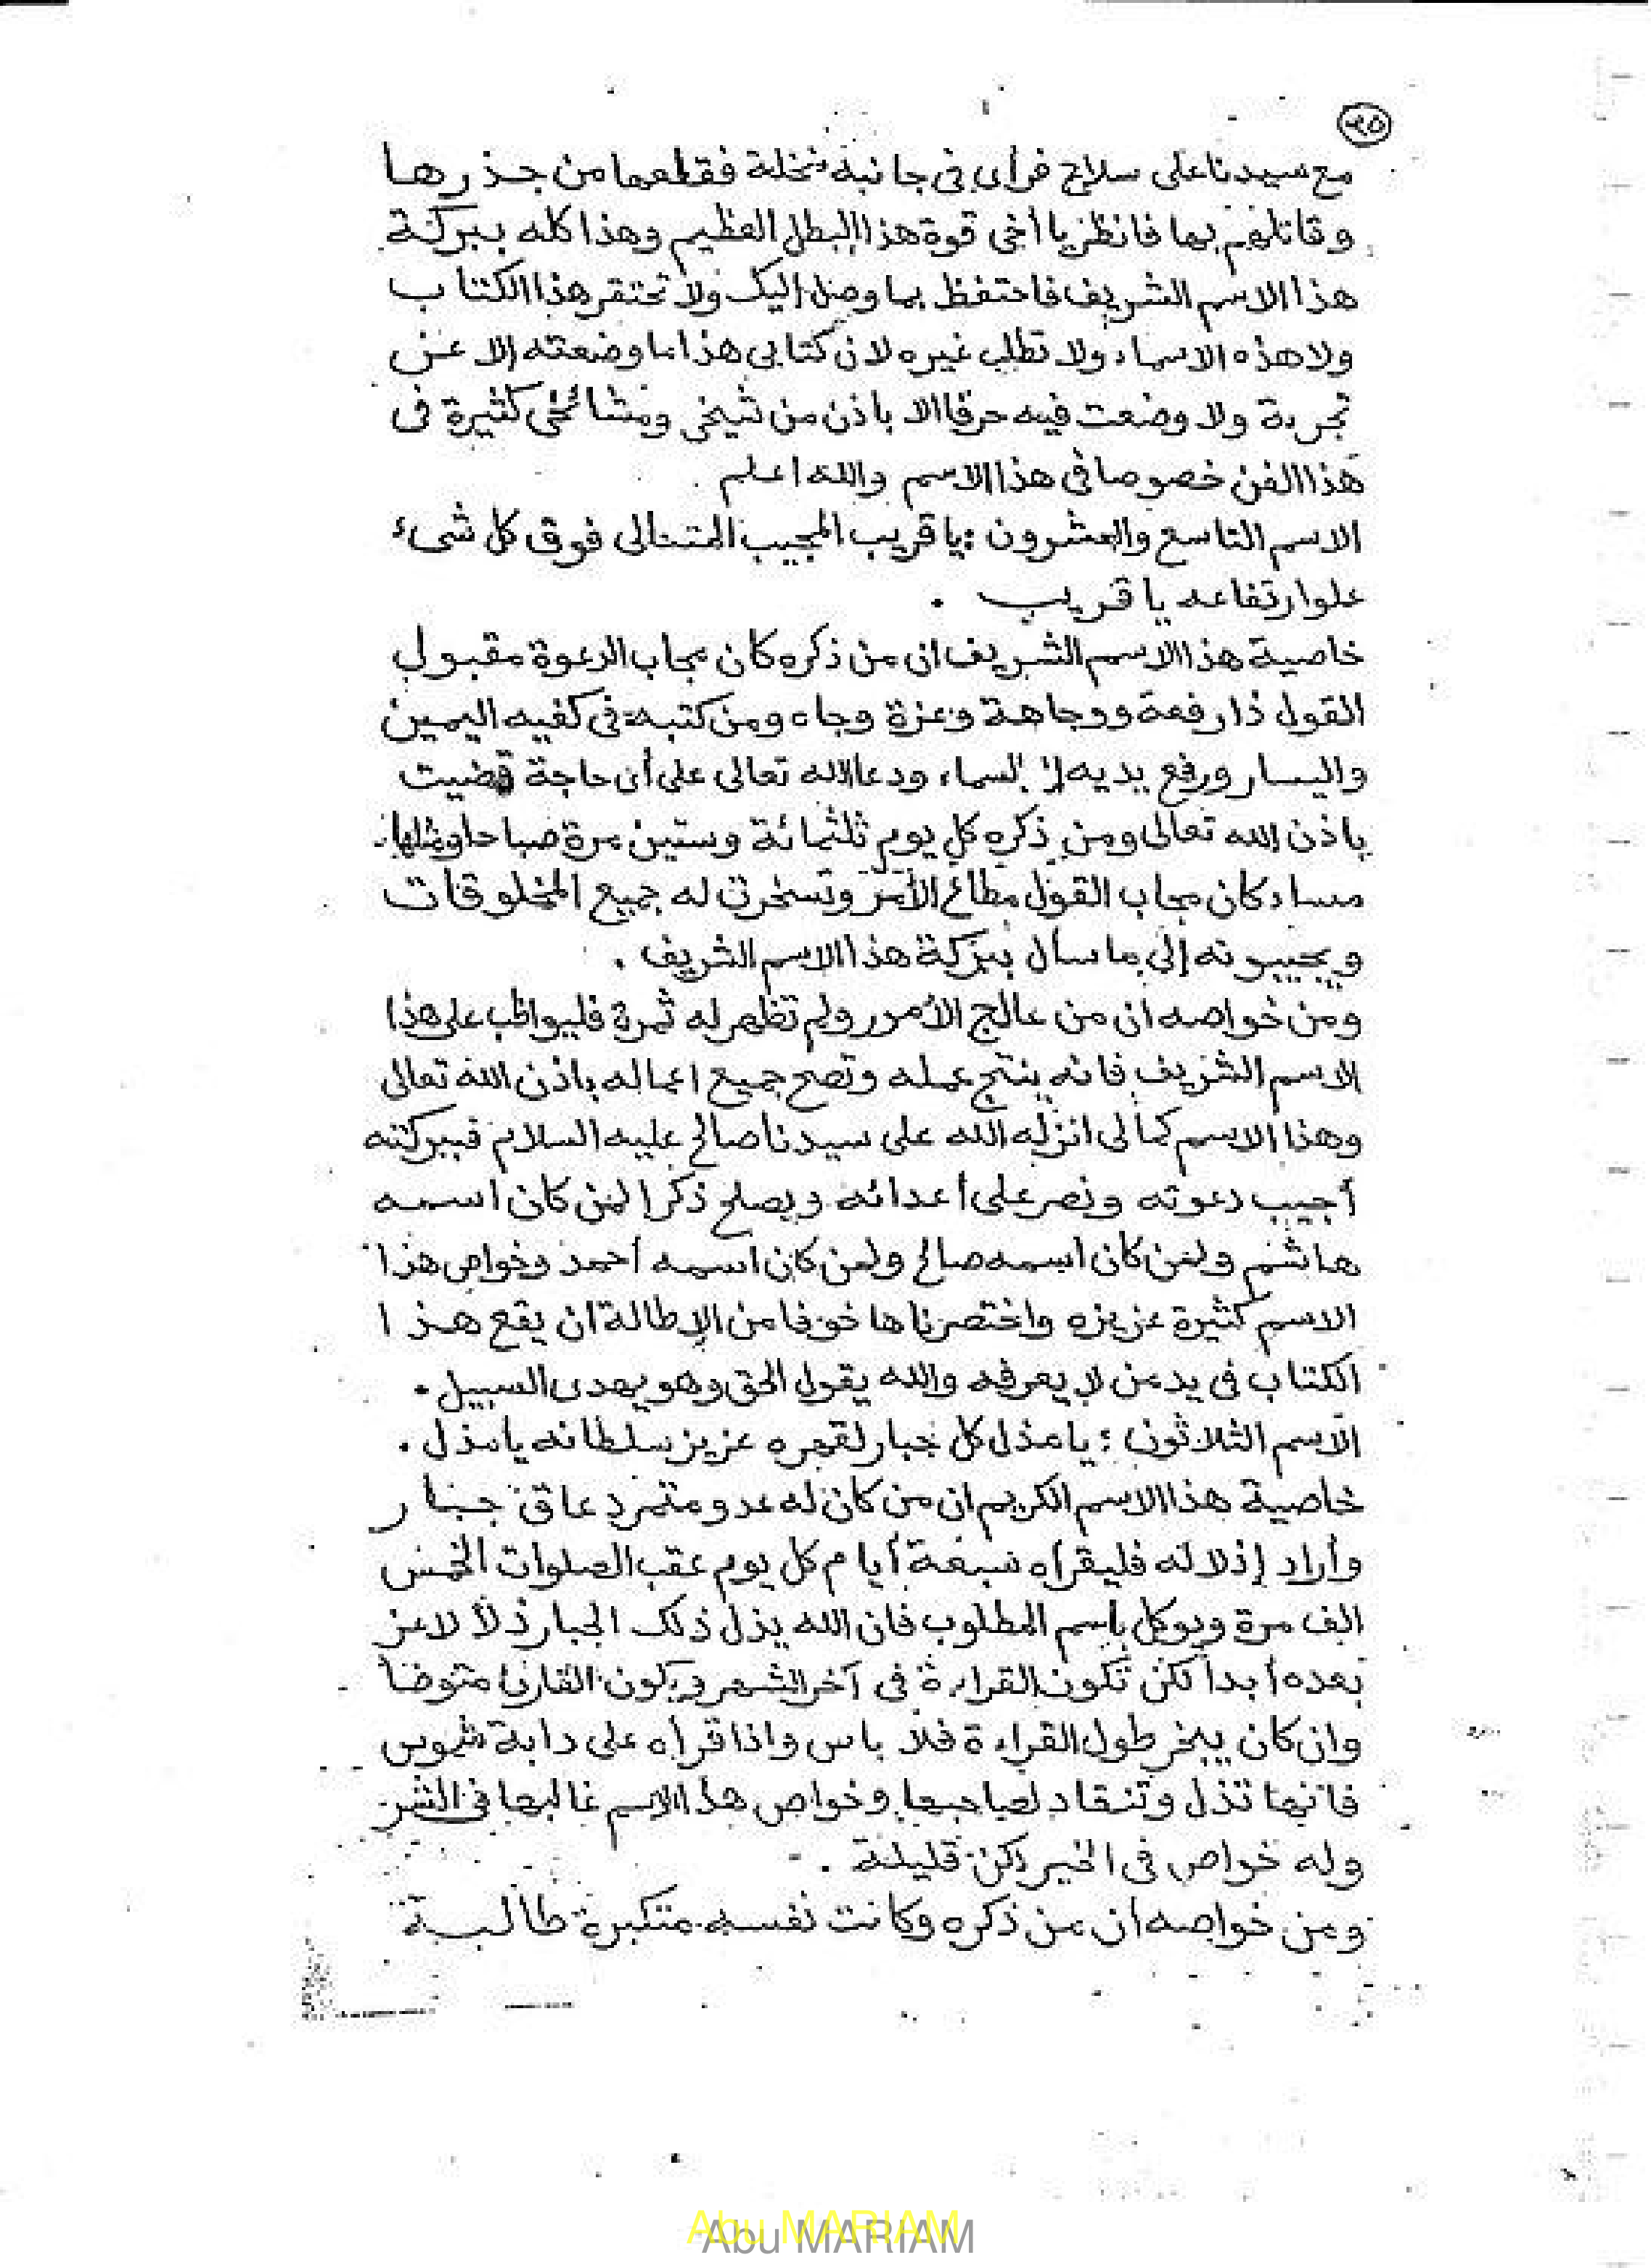 ٢٥
مع سيدنا على سلاح فرأى فى جانبه نخلة فقلعها من جذرها
وقاتلهم بها فانظر يا أخى قوة هذا البطل العظيم وهذا كله ببركة
هذا الاسم الشريف فاحتفظ بما وصل إليك ولا تحتقر هذا الكتاب
ولا هذه الاسماء ولا تطلب غيره لان كتابى هذا ما وضعته إلا عن
تجربة ولا وضعت فيه حرفا الا باذن من شيخى ومشائخى كثيرة فى
هذا الفن خصوصا فى هذا الاسم والله اعلم
الاسم التاسع والعشرون : يا قريب المجيب المتعالى فوق كل شىء
علوا رتفاعه يا قريب .
خاصية هذا الاسم الشريف ان من ذكره كان مجاب الدعوة مقبول
القول ذا رفعة ووجاهة وعزة وجاه ومن كتبه فى كفيه اليمين
واليسار ورفع يديه السماء ودعا الله تعالى على أى حاجة قضيت
باذن الله تعالى ومن ذكره كل يوم ثلثمائة وستين مرة صباحا ومثلها
مساء كان مجاب القول مطاع الأمر وتسخرت له جميع المخلوقات
ويجيبونه إلى ما سأل ببركة هذا الاسم الشريف .
ومن خواصه ان من عالج الأمور ولم تظهر له ثمرة فليواظب على هذا
الاسم الشريف فانه ينتج عمله وتصح جميع اعماله باذن الله تعالى
وهذا الاسم كمالى انزله الله على سيدنا صالح عليه السلام فببركته
أجيب دعوته ونصر على أعدائه ويصلح ذكرا لمن كان اسمه
هاشم ولمن كان اسمه صالح ولمن كان اسمه أحمد وخواص هذا
الاسم كثيرة عزيزه واختصرناها خوفا من الإطالة ان يقع هذا
الكتاب فى يد من لا يعرفه والله يقول الحق وهو يهدى السبيل .
الاسم الثلاثون : يا مذل كل جبار لقهره عزيز سلطانه يا مذل .
خاصية هذا الاسم الكريم ان من كان له عدو متمرد عاق جبار
وأراد إذلاله فليقرأه سبعة أيام كل يوم عقب الصلوات الخمس
الف مرة ويوكل باسم المطلوب فان الله يذل ذلك الجبار ذلا لا عز
بعده أبدا لكن تكون القراءة فى آخر الشهر ويكون القارئ متوضأ
وان كان يبخر طول القراءة فلا باس واذا قرأه على دابة شموس
فانها تذل وتنقاد لصاحبها وخواص هذا الاسم غالبها فى الشر
وله خواص فى الخير لكن قليلة .
ومن خواصه أن من ذكره وكانت نفسه متكبرة طالبة
Abu MARIAM
Abu MARIAM